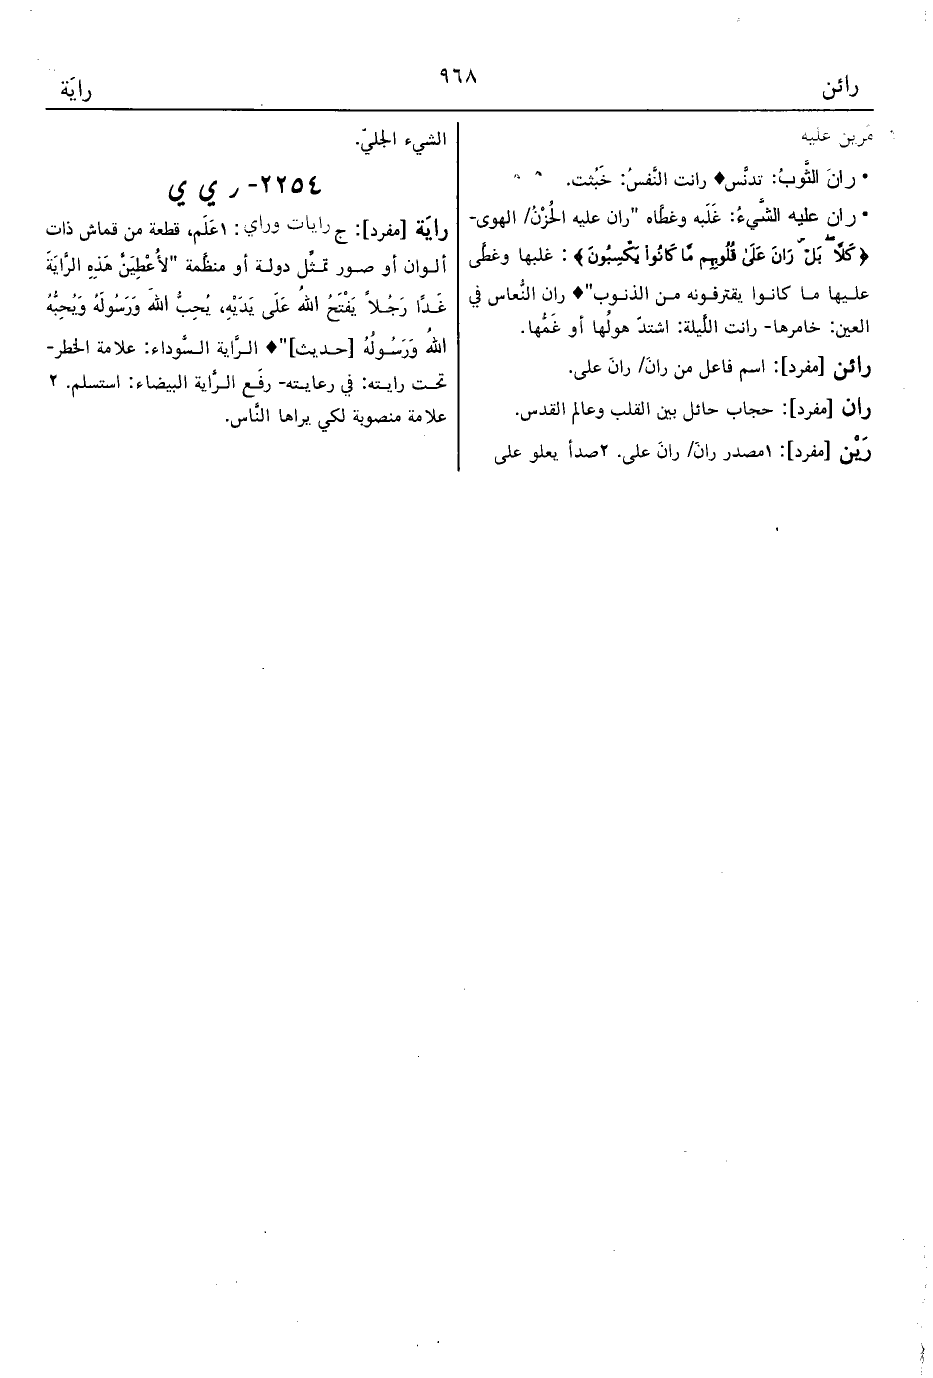 رائن
٩٦٨
راية
مَرين عليه
• رانَ الثَّوبُ: تدنَّس♦ رانت النَّفسُ: خَبُثت.
• ران عليه الشَّيءُ: غَلَبه وغطَّاه "ران عليه الحُزْنُ/ الهوى-
﴿كَلَّا بَلْ رَانَ عَلَى قُلُوبِهِم مَّا كَانُوا يَكْسِبُونَ﴾: غلبها وغطَّى
عليها ما كانوا يقترفونه من الذنوب"♦ ران النُّعاس في
العين: خامرها- رانت اللَّيلة: اشتدّ هولُها أو غَمُّها.
رائن [مفرد]: اسم فاعل من رانَ/ رانَ على.
ران [مفرد]: حجاب حائل بين القلب وعالم القدس.
رَيْن [مفرد]: ١مصدر رانَ/ رانَ على. ٢صدأ يعلو على
الشيء الجليّ.
٢٢٥٤- ر ي ي
راية [مفرد]: ج رايات وراي: ١عَلَم، قطعة من قماش ذات
ألوان أو صور تمثِّل دولة أو منظَّمة "لأُعْطِيَنَّ هَذِهِ الرَّايَةَ
غَدًا رَجُلاً يَفْتَحُ اللهُ عَلَى يَدَيْهِ، يُحِبُّ اللهَ وَرَسُولَهُ وَيُحِبُّهُ
اللهُ وَرَسُولُهُ [حديث]"♦ الرَّاية السَّوداء: علامة الخطر-
تحت رايته: في رعايته- رفَع الرَّاية البيضاء: استسلم. ٢
علامة منصوبة لكي يراها النَّاس.